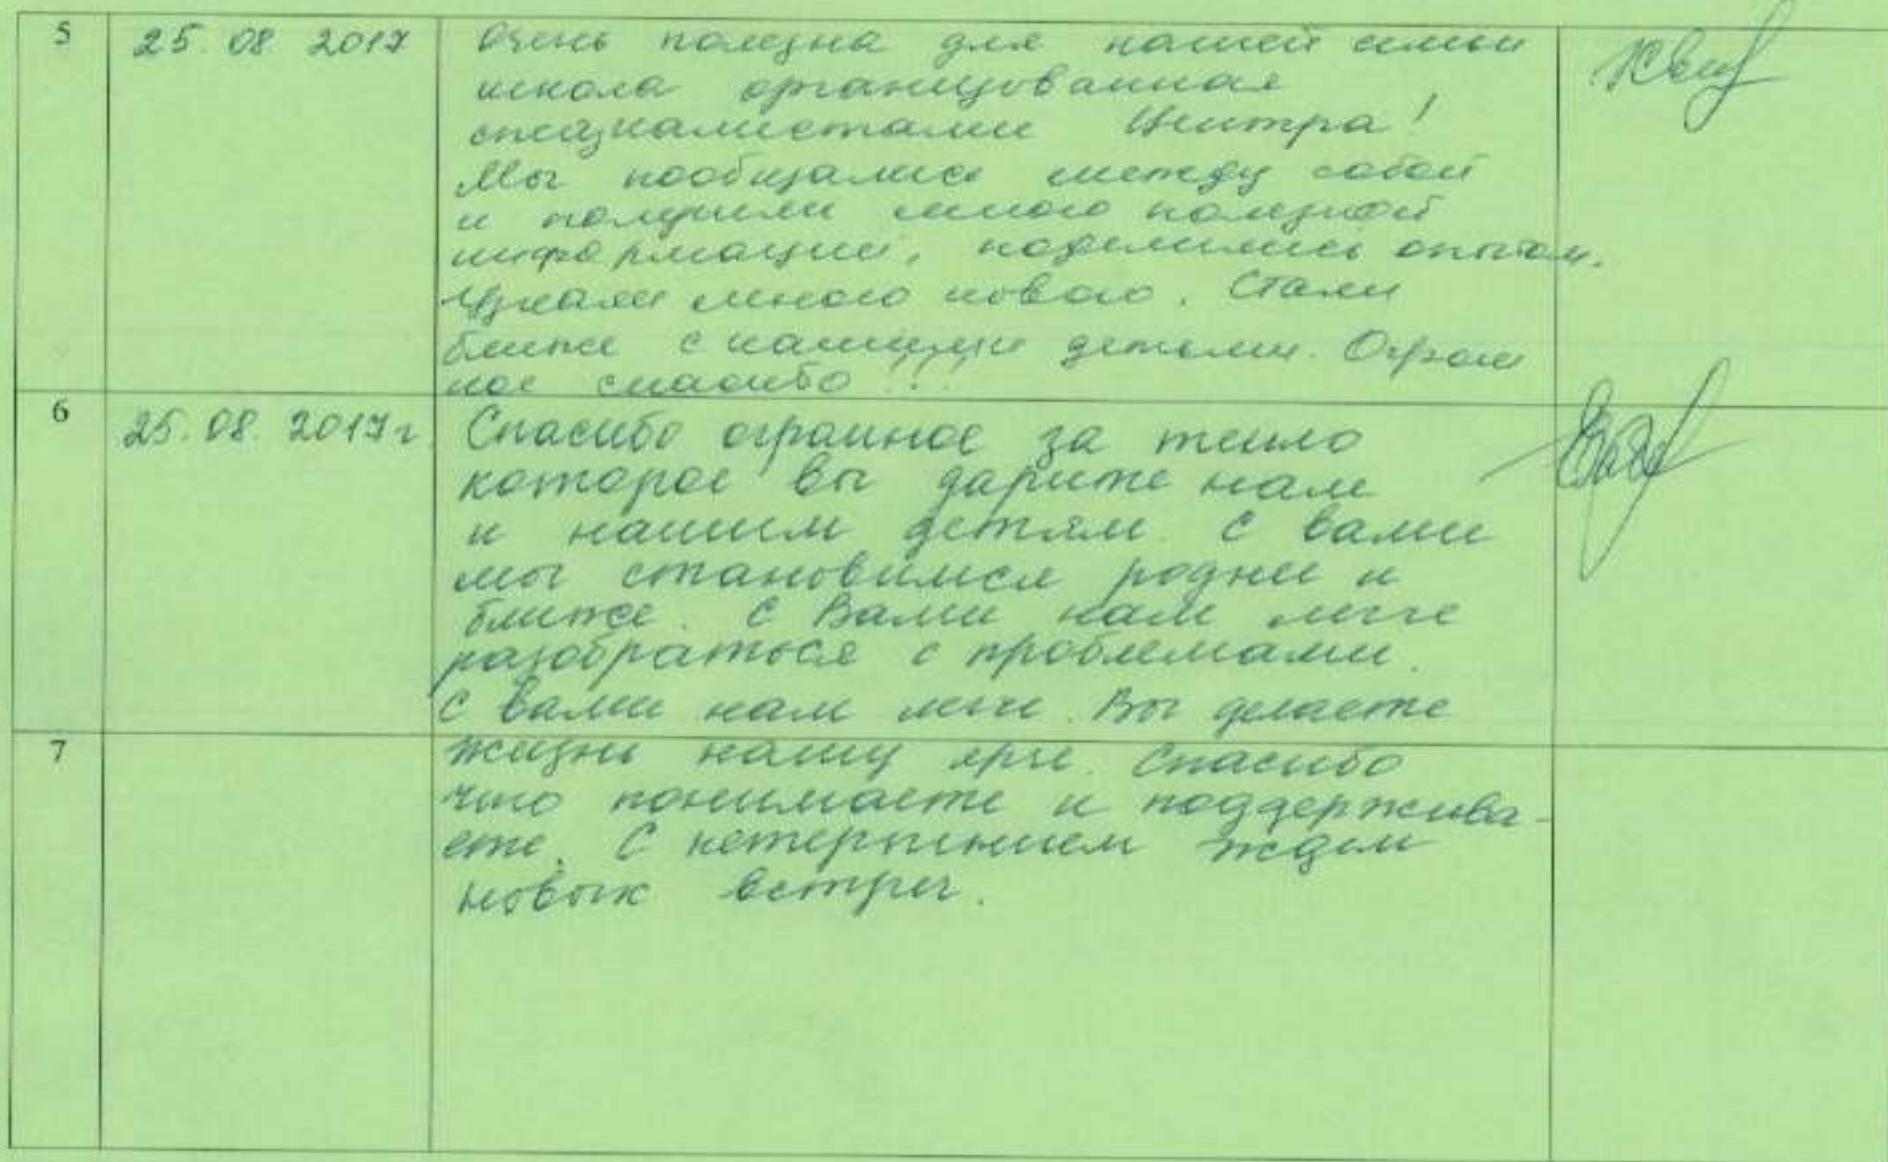 5 25.08 2017 Очень полезна для нашей семьи
школа организованная
специалистами Центра!
Мы пообщались между собой
и получили много полезной
информации, поделились опытом.
Узнали много нового. Стали
ближе с нашими детьми. Огром
ное спасибо!!!
6 25.08.2017г Спасибо огромное за тепло
которое вы дарите нам
и нашим детям. С вами
мы становимся роднее и
ближе. С Вами нам легче
разобраться с проблемами.
С вами нам легче. Вы делаете
7 жизнь нашу ярче. Спасибо
что понимаете и поддержива-
ете. С нетерпением ждем
новых встреч.